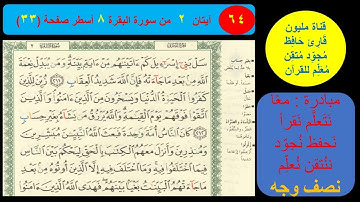 ٦٤
أيتان ٢ من سورة البقرة ٨ أسطر صفحة (٣٣)
قناة مليون
قارئ حافظ
مُجوّد مُتقن
مُعلّم للقرآن
مبادرة : معًا
نتعلّم نقرأ
نحفظ نُجوّد
نُتقن نُعلّم
نصف وجه
سَلْ بَنِي إِسْرَائِيلَ كَمْ آتَيْنَاهُم مِّنْ آيَةٍ بَيِّنَةٍ وَمَن يُبَدِّلْ نِعْمَةَ
اللَّهِ مِن بَعْدِ مَا جَاءَتْهُ فَإِنَّ اللَّهَ شَدِيدُ الْعِقَابِ ٢١١ زُيِّنَ لِلَّذِينَ
كَفَرُوا الْحَيَاةُ الدُّنْيَا وَيَسْخَرُونَ مِنَ الَّذِينَ آمَنُوا وَالَّذِينَ
اتَّقَوْا فَوْقَهُمْ يَوْمَ الْقِيَامَةِ وَاللَّهُ يَرْزُقُ مَن يَشَاءُ بِغَيْرِ حِسَابٍ
٢١٢ كَانَ النَّاسُ أُمَّةً وَاحِدَةً فَبَعَثَ اللَّهُ النَّبِيِّينَ مُبَشِّرِينَ
وَمُنذِرِينَ وَأَنزَلَ مَعَهُمُ الْكِتَابَ بِالْحَقِّ لِيَحْكُمَ بَيْنَ النَّاسِ
فِيمَا اخْتَلَفُوا فِيهِ وَمَا اخْتَلَفَ فِيهِ إِلَّا الَّذِينَ أُوتُوهُ مِن بَعْدِ
مَا جَاءَتْهُمُ الْبَيِّنَاتُ بَغْيًا بَيْنَهُمْ فَهَدَى اللَّهُ الَّذِينَ آمَنُوا